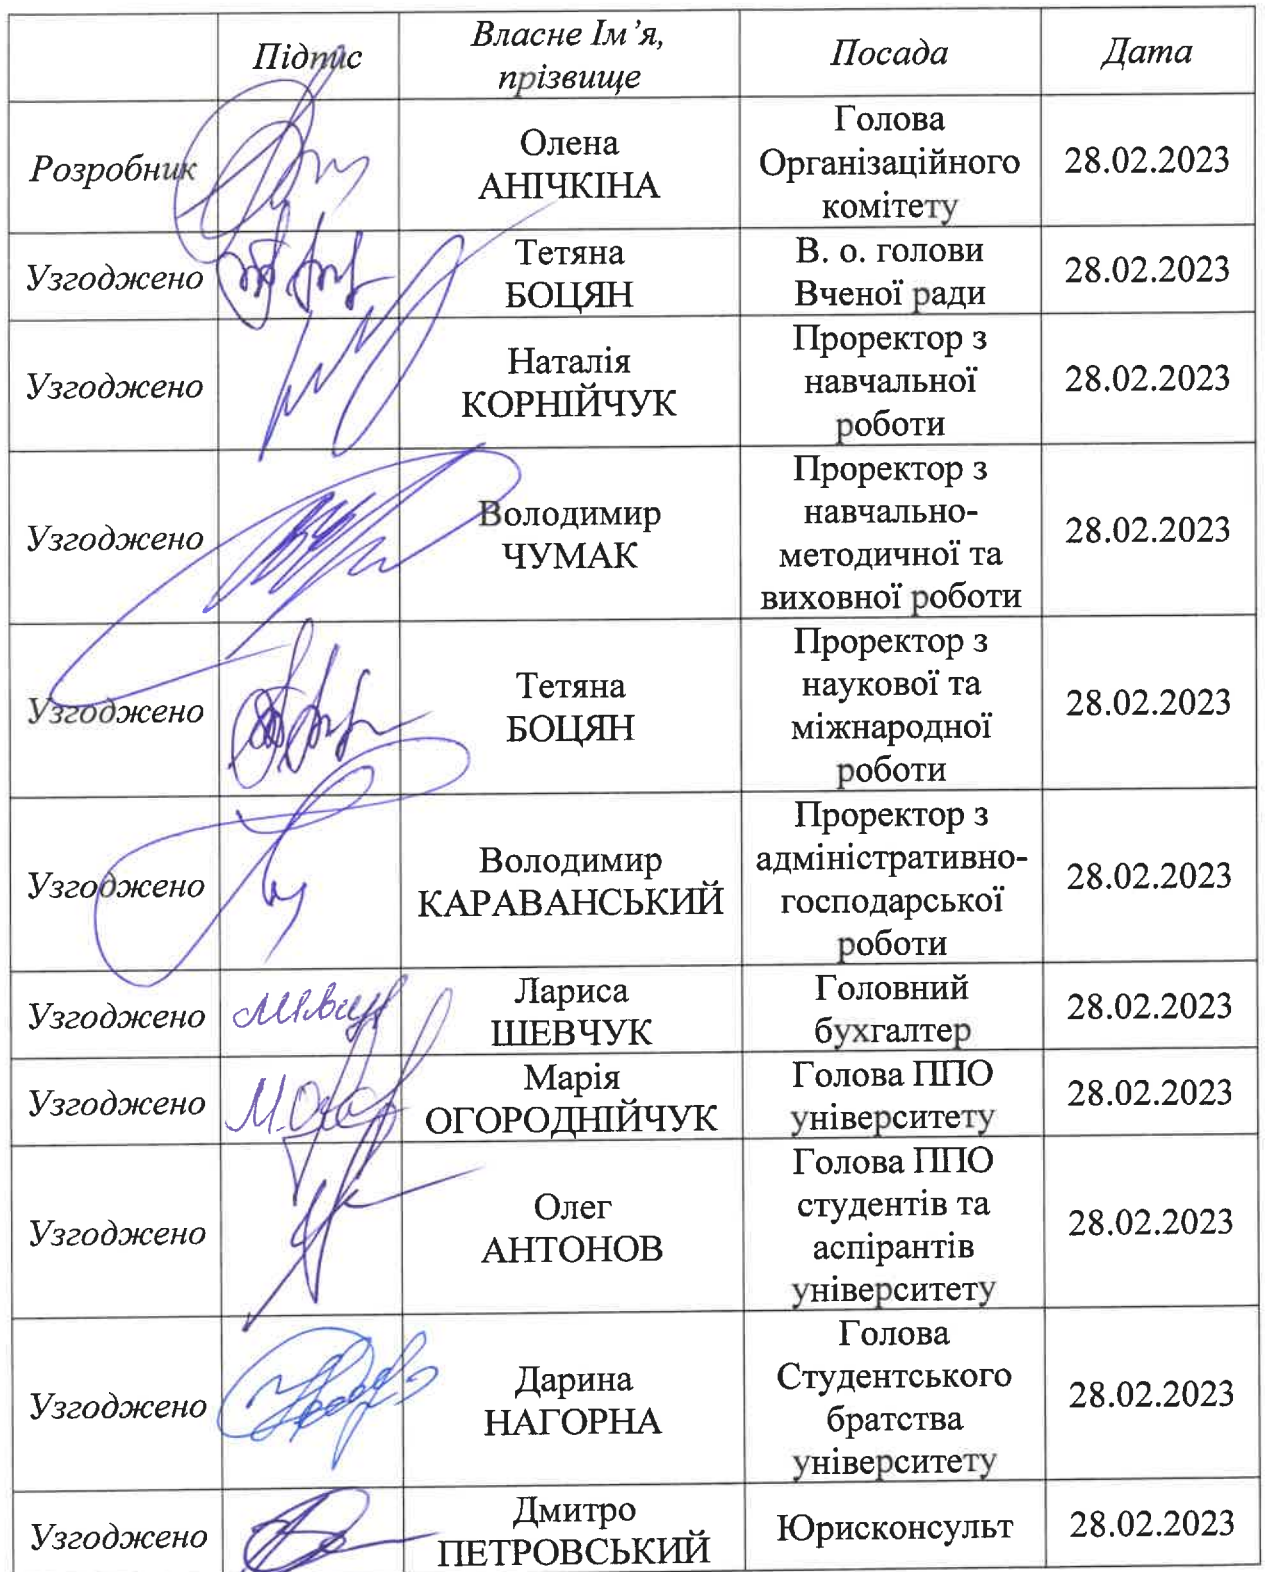 Підпис
Власне Ім’я,
прізвище
Посада
Дата
Розробник
Олена
АНІЧКІНА
Голова
Організаційного
комітету
28.02.2023
Узгоджено
Тетяна
БОЦЯН
В. о. голови
Вченої ради
28.02.2023
Узгоджено
Наталія
КОРНІЙЧУК
Проректор з
навчальної
роботи
28.02.2023
Узгоджено
Володимир
ЧУМАК
Проректор з
навчально-
методичної та
виховної роботи
28.02.2023
Узгоджено
Тетяна
БОЦЯН
Проректор з
наукової та
міжнародної
роботи
28.02.2023
Узгоджено
Володимир
КАРАВАНСЬКИЙ
Проректор з
адміністративно-
господарської
роботи
28.02.2023
Узгоджено
Лариса
ШЕВЧУК
Головний
бухгалтер
28.02.2023
Узгоджено
Марія
ОГОРОДНІЙЧУК
Голова ППО
університету
28.02.2023
Узгоджено
Олег
АНТОНОВ
Голова ППО
студентів та
аспірантів
університету
28.02.2023
Узгоджено
Дарина
НАГОРНА
Голова
Студентського
братства
університету
28.02.2023
Узгоджено
Дмитро
ПЕТРОВСЬКИЙ
Юрисконсульт
28.02.2023